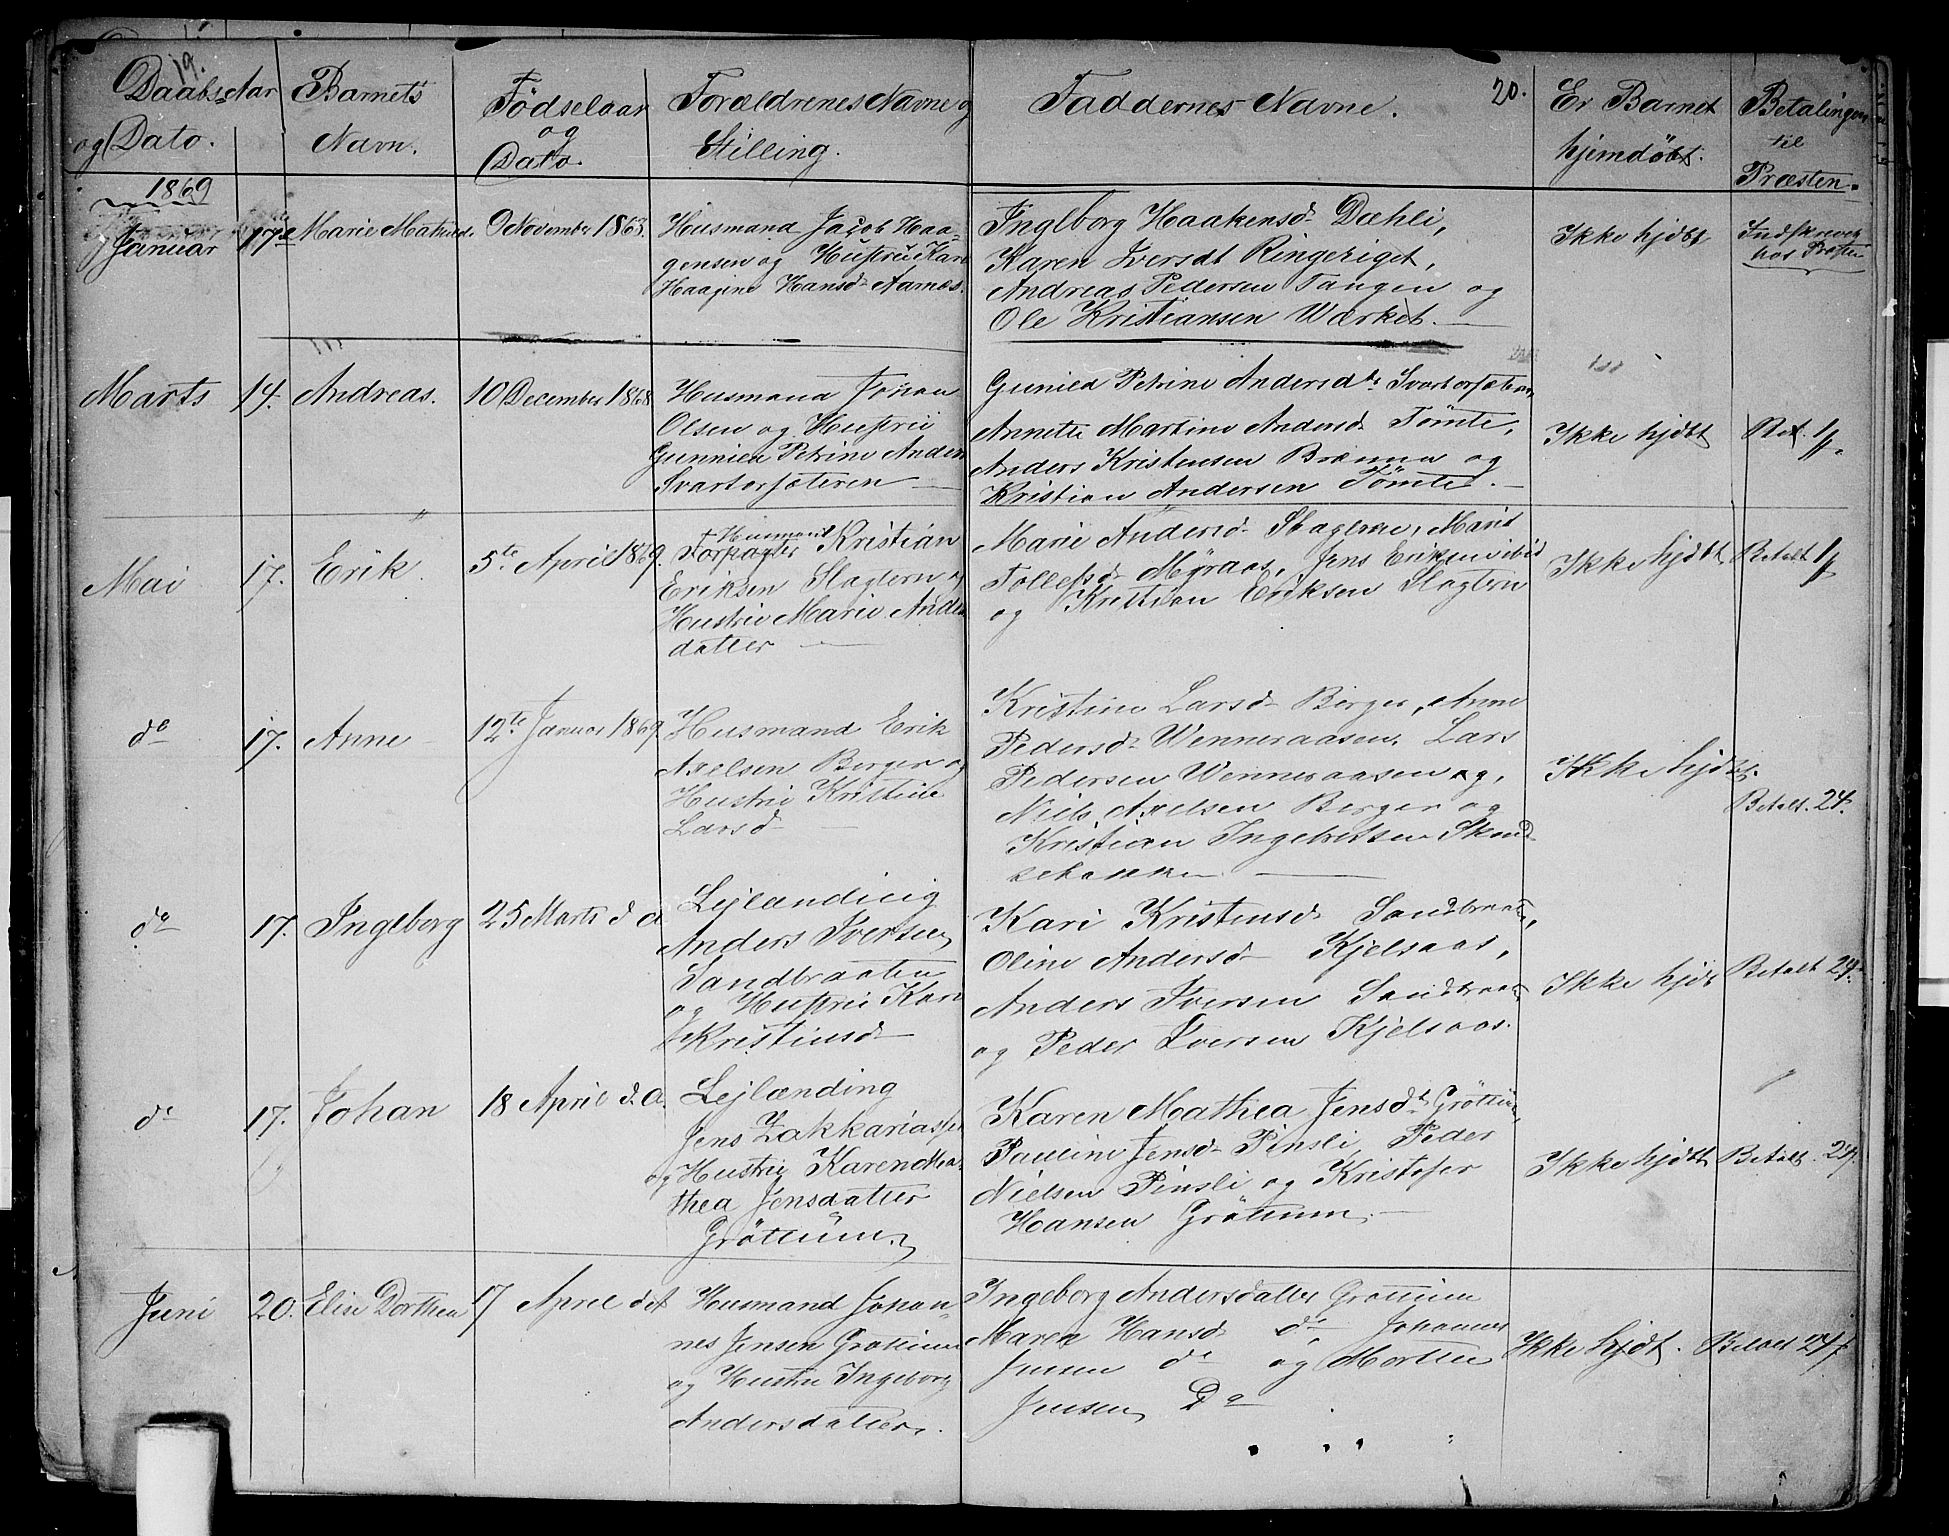 19.
20.
Daabs Aar
og Dato.
Barnets
Navn.
Födselaar
og
Dato.
Forældrenes Navne og
Stilling.
Faddernes Navne.
Er Barnet
hjemdöbt.
Betalingen
til
Præsten.
1869
Januar
17de
Marie Mathilde
9 November 1868.
Husmand Jacob Haa-
gensen og Hustrü Kari
Haagine Hansd. Aarnæs.
Ingeborg Haakensd. Dæhli,
Karen Iversdt Ringeriget,
Andreas Pedersen Tangen og
Ole Kristiansen Værket.
Ikke hjdbt
Indskrevet
hos Præsten
Marts
14.
Andreas.
10 December 1868.
Husmand Johan
Olsen og Hustrü
Gunnild Petrine Anders
Svartorsæteren
Gunild Petrine Andersdtr Svartorsæteren,
Annette Martine Andersd Tömte,
Anders Kristensen Brænna og
Kristian Andersen Tömte.
Ikke hjdbt
Bet. 1
Mai
17.
Erik.
5te April 1869.
Husmand
Torpagter Kristian
Eriksen Slagtern og
Hustrü Marie Anders
datter
Marie Andersd. Slagtern, Marit
Tollefsd. Myraas, Jens Eriksen ibid
og Kristian Eriksen Slagtern
Ikke hjdbt
Betalt 1
do
17.
Anne
12te Januar 1869.
Husmand Erik
Axelsen Berger og
Hustrü Kristine
Larsd
Kristine Larsd. Berger, Anne
Pedersd. Wenneraasen, Lars
Pedersen Wenneraasen og,
Niels Axelsen Berger og
Kristian Ingebretsen Skand-
sebakken.
Ikke hjdbt.
Betalt. 24.
do
17.
Ingeborg
25 Marts d. a.
Lejlænding
Anders Iversen
Sandbraaten
og Hustrü Kari
Kristinsd
Kari Kristinsd. Sandbraaten,
Oline Andersd Kjelsaas,
Anders Iversen Sandbraaten
og Peder Iversen Kjelsaas.
Ikke hjdb
Betalt 24.
do
17.
Johan
18 April d. a.
Lejlænding
Jens Zakkariassen
og Hustrü Karen Ma-
thea Jensdatter
Gröttüm
Karen Mathea Jensdt Gröttüm,
Pauline Jensd Pinsli, Peder
Nielsen Pinsli og Kristofer
Hansen Gröttum.
Ikke hjdbt
Betalt. 24.
Juni
20.
Elise Dorthea
17 April d A
Husmand Johan-
nes Jensen Grøttum
og Hustru Ingeborg
Andersdatter.
Ingeborg Andersdatter Grøttum
Maren Hansd do, Johannes
Jensen do og Morten
Jensen Do
Ikke hjdt.
Betalt 24